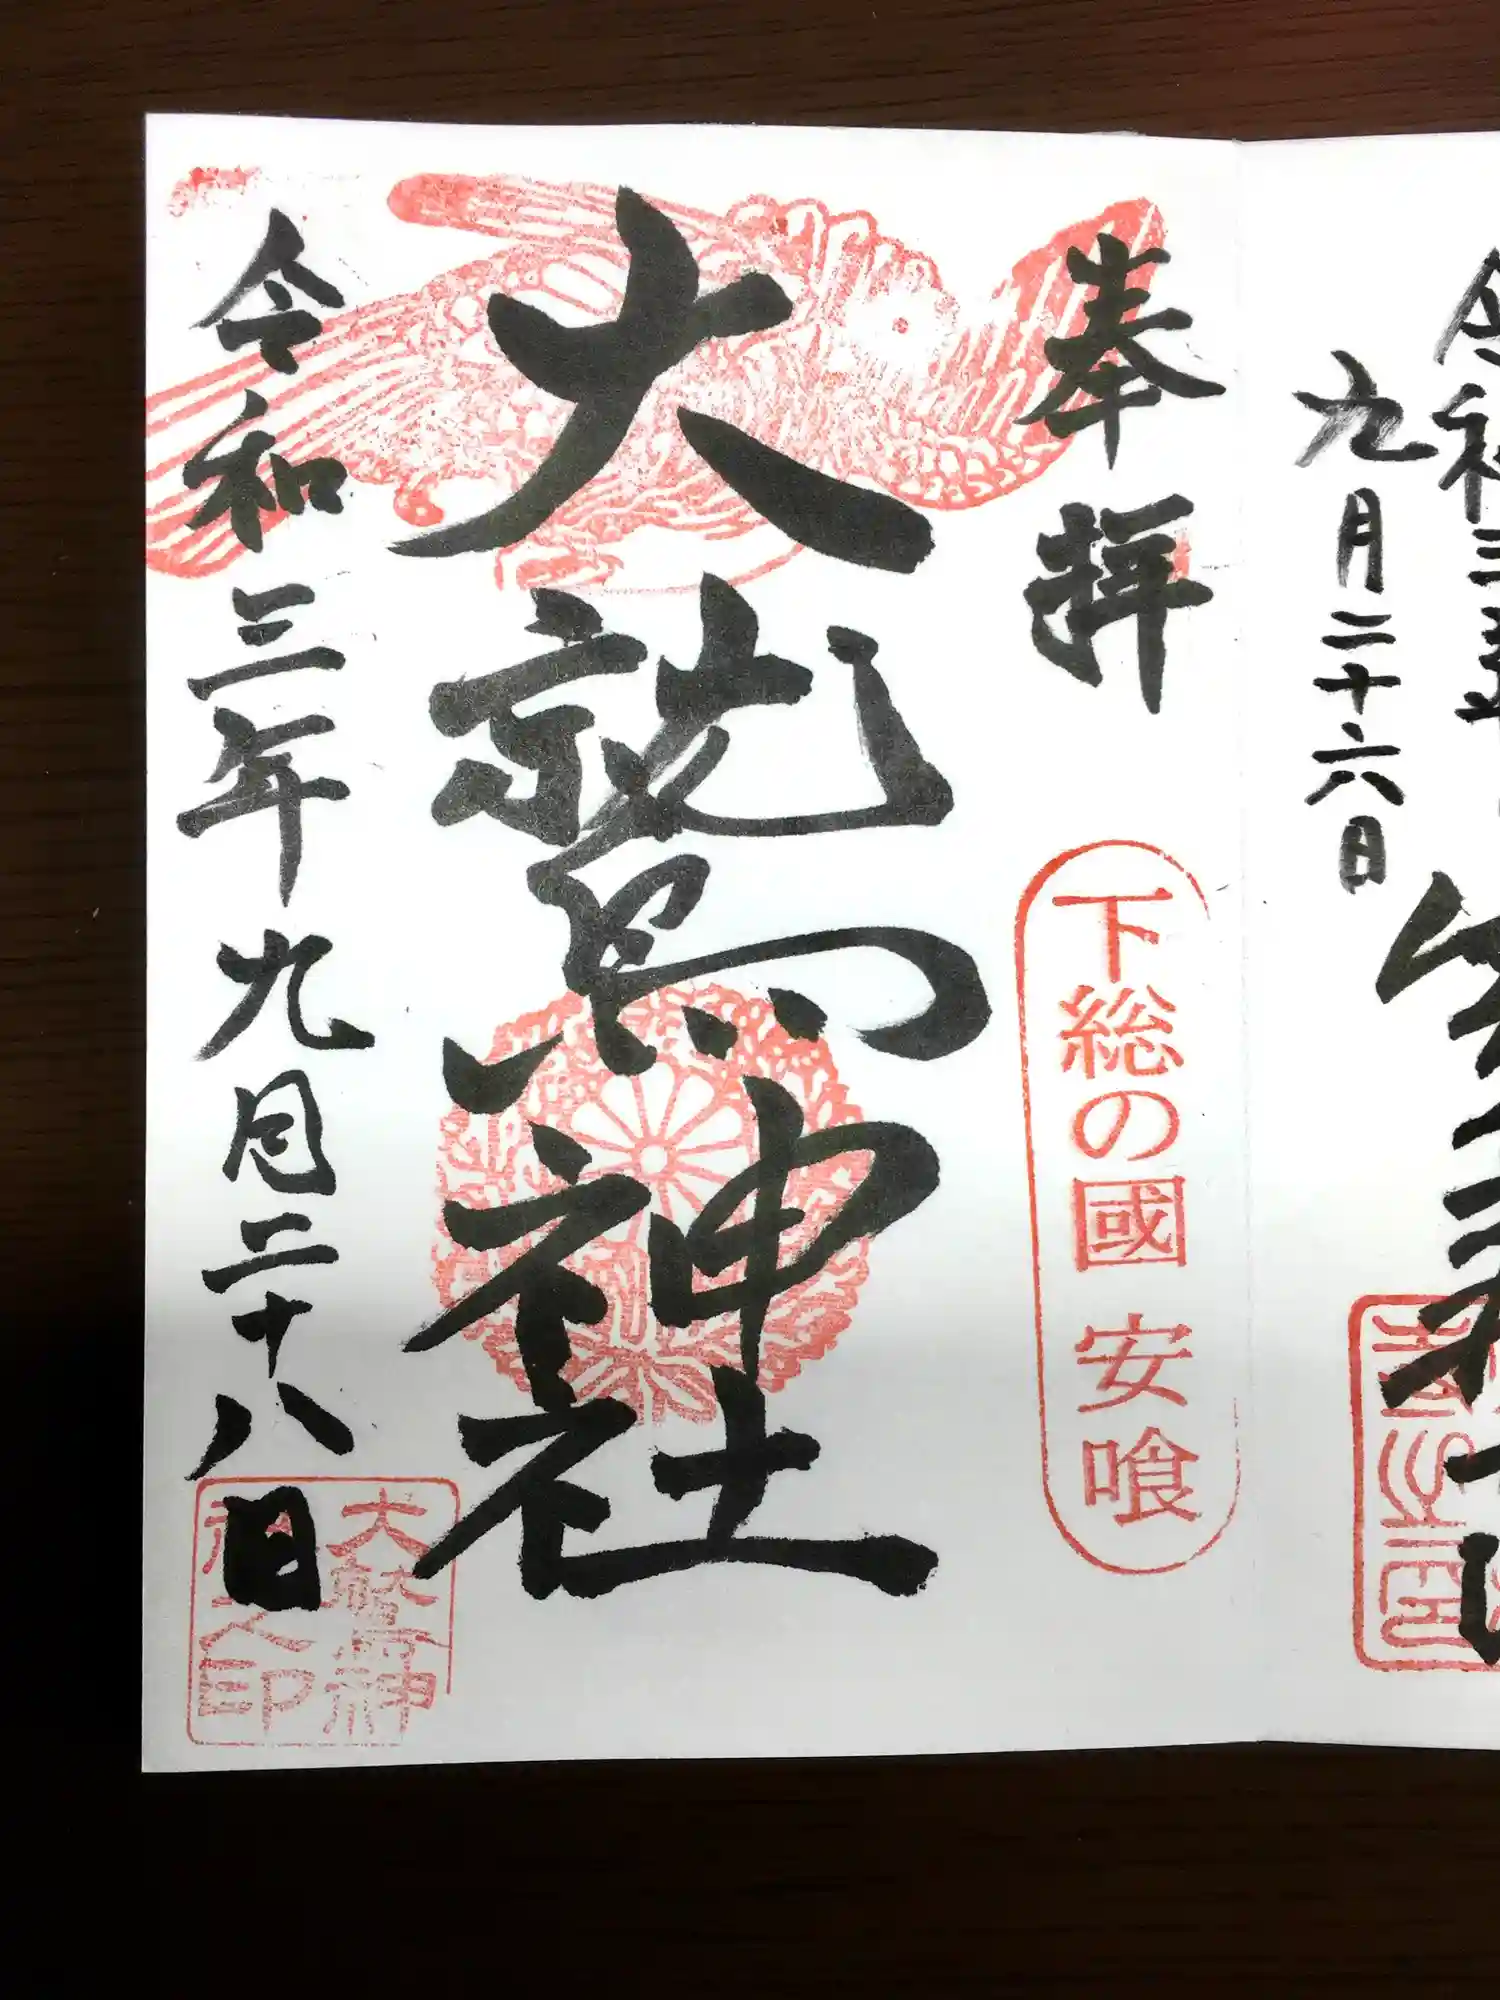 令和三年
九月二十六日
奉拝
下総の國 安喰
大鷲神社
令和三年九月二十八日
大鷲神
社之印